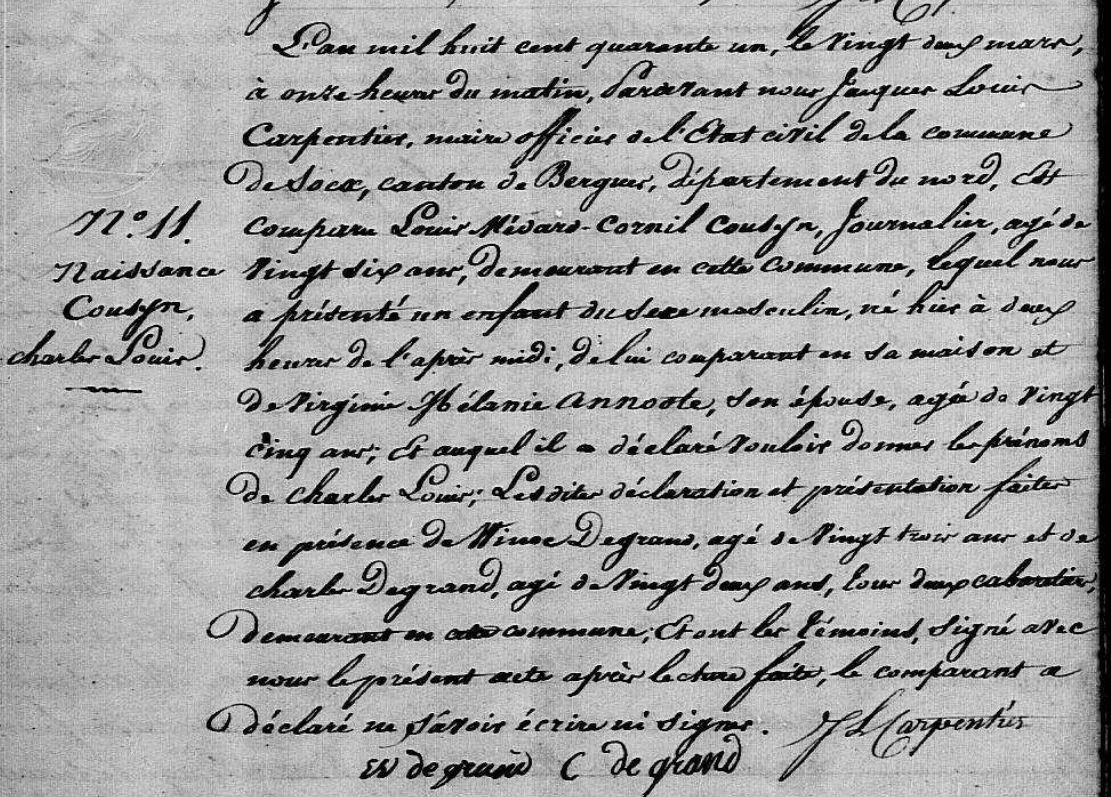 N.º 11.
Naissance
Cousyn,
charles Louis.
L'an mil huit cent quarante un, le vingt deux mars,
à onze heures du matin, Pardevant nous Jacques Louis
Carpentier, maire officier de l'Etat civil de la commune
de Socx, canton de Bergues, département du nord, Est
comparu Louis Médard-Cornil Cousyn, Journalier, agé de
vingt six ans, demeurant en cette commune, lequel nous
a présenté un enfant du sexe masculin, né hier à deux
heures de l'après midi, de lui comparant en sa maison et
de Virginie Mélanie Annoote, son épouse, agée de vingt
cinq ans; Et auquel il a déclaré vouloir donner les prénoms
de charles Louis; Les dites déclaration et présentation faites
en présence de Winoc Degrand, agé de vingt trois ans et de
charles Degrand, agé de vingt deux ans, tous deux cabaretiers,
demeurant en cette commune; Et ont les témoins, signé avec
nous le présent acte après lecture faite, le comparant a
déclaré ne savoir écrire ni signer. J L Carpentier
W degrand C degrand